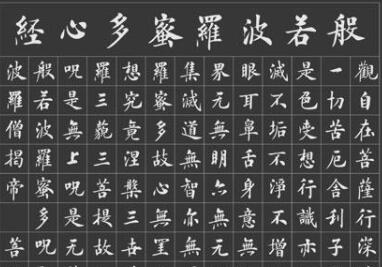 般若波羅蜜多心經
觀自在菩薩行深
一切苦厄舍利子
是色受想行識亦
滅不垢不淨不增
眼耳鼻舌身意無
界无無明亦無无
集滅道無智亦無
羅蜜多故心無罣
想究竟涅槃三世
羅三藐三菩提故
呪是無上呪是无
般若波羅蜜多呪
波羅僧揭帝菩